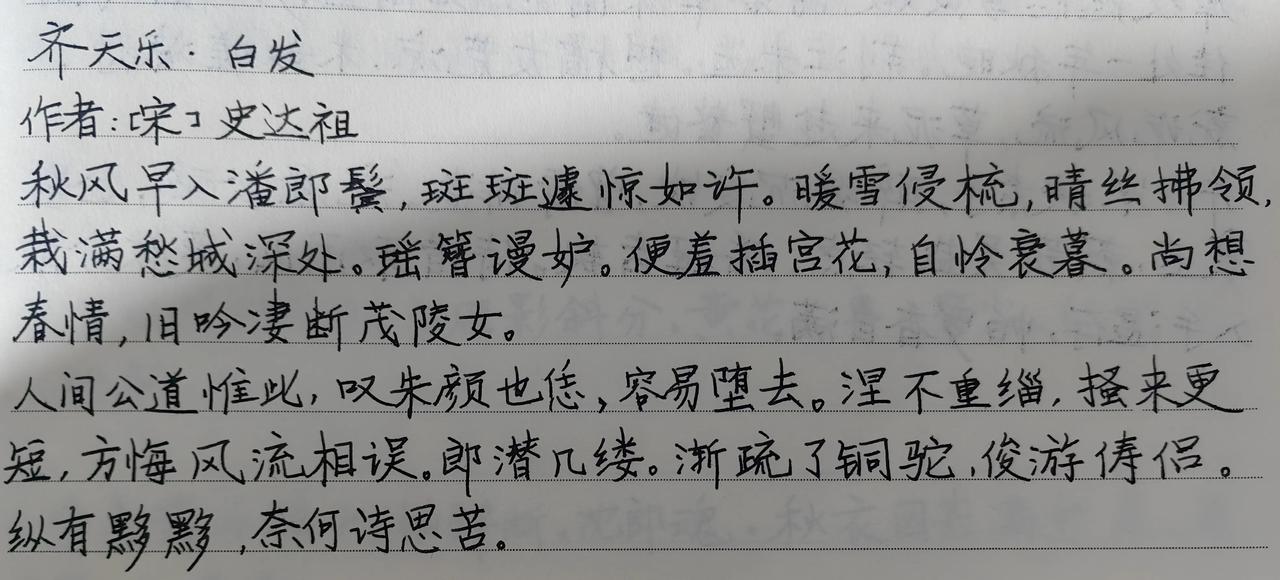 齐天乐·白发
作者:[宋]史达祖
秋风早入潘郎鬓,斑斑遽惊如许。暖雪侵梳,晴丝拂领,
栽满愁城深处。瑶簪谩妒。便羞插宫花,自怜衰暮。尚想
春情,旧吟凄断茂陵女。
人间公道惟此,叹朱颜也恁,容易堕去。涅不重缁,搔来更
短,方悔风流相误。郎潜几缕。渐疏了铜驼,俊游俦侣。
纵有黟黟,奈何诗思苦。